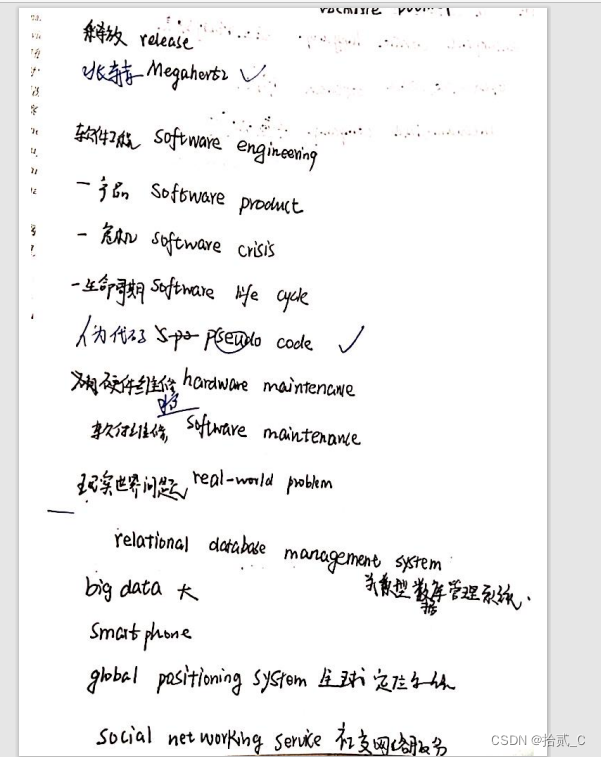 释放 release
兆赫 Megahertz ✓
软件工程 software engineering
一 产品 software product
一 危机 software crisis
一 生命周期 software life cycle
伪代码 pseudo code ✓
硬件维修 hardware maintenance
软件维修 software maintenance
现实世界问题 real-world problem
relational database management system
关系型数据库管理系统.
big data 大
smart phone
global positioning system 全球定位系统
social networking service 社交网络服务
CSDN @拾贰_C